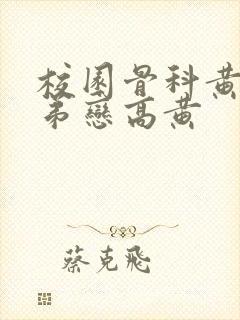 校園骨科黃
弟戀高黃
蔡克飛